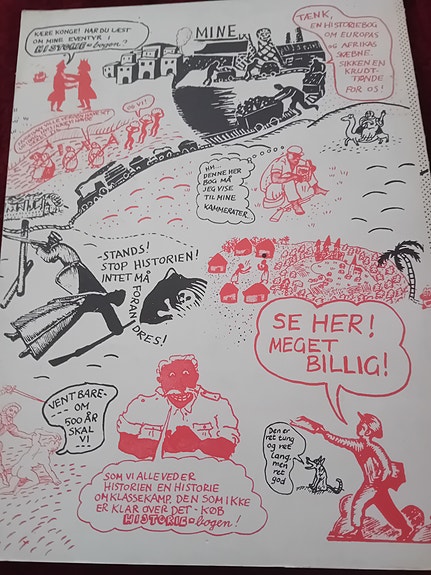 KÆRE KONGE! HAR DU LÆST
OM MINE EVENTYR I
HISTORIE-bogen?
MINE
TÆNK,
EN HISTORIEBOG
OM EUROPAS
OG AFRIKAS
SKÆBNE.
SIKKEN EN
KRUDT-
TØNDE
FOR OS!
OG VI!
HM...
DENNE HER
BOG MÅ
JEG VISE
TIL MINE
KAMMERATER
-STANDS!
STOP HISTORIEN!
INTET MÅ
FORANDRES!
SE HER!
MEGET
BILLIG!
VENT BARE-
OM
500 ÅR
SKAL
VI---
Den er
ret tung
og ret
lang,
men
ret
god
SOM VI ALLE VED ER
HISTORIEN EN HISTORIE
OM KLASSEKAMP. DEN SOM IKKE
ER KLAR OVER DET - KØB
HISTORIE-bogen!